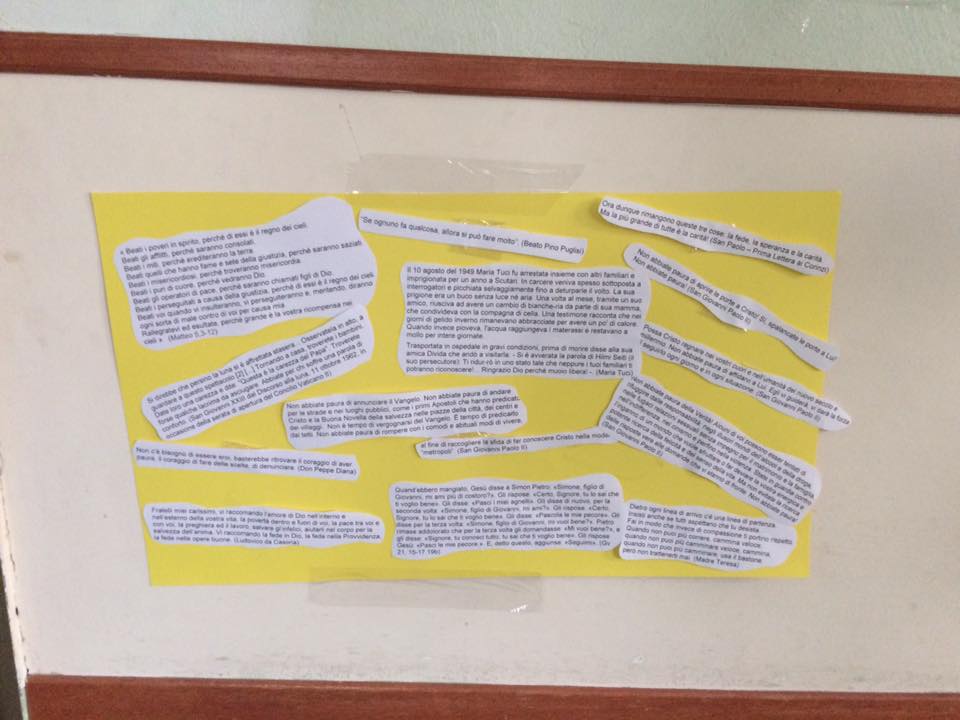 « Beati i poveri in spirito, perché di essi è il regno dei cieli.
Beati gli afflitti, perché saranno consolati.
Beati i miti, perché erediteranno la terra.
Beati quelli che hanno fame e sete della giustizia, perché saranno saziati
Beati i misericordiosi, perché troveranno misericordia.
Beati i puri di cuore, perché vedranno Dio.
Beati gli operatori di pace, perché saranno chiamati figli di Dio.
Beati i perseguitati a causa della giustizia, perché di essi è il regno dei cieli.
Beati voi quando vi insulteranno, vi perseguiteranno e, mentendo, diranno
ogni sorta di male contro di voi per causa mia.
Rallegratevi ed esultate, perché grande è la vostra ricompensa nei
cieli ». (Matteo 5,3-12)
"Se ognuno fa qualcosa, allora si può fare molto". (Beato Pino Puglisi)
Ora dunque rimangono queste tre cose: la fede, la speranza e la carità.
Ma la più grande di tutte è la carità! (San Paolo – Prima Lettera ai Corinzi)
Non abbiate paura di aprire le porte a Cristo! Sì, spalancate le porte a Lui!
Non abbiate paura! (San Giovanni Paolo II)
Il 10 agosto del 1949 Maria Tuci fu arrestata insieme con altri familiari e
imprigionata per un anno a Scutari. In carcere veniva spesso sottoposta a
interrogatori e picchiata selvaggiamente fino a deturparle il volto. La sua
prigione era un buco senza luce né aria. Una volta al mese, tramite un suo
amico, riusciva ad avere un cambio di biancheria da parte di sua mamma,
che condivideva con la compagna di cella. Una testimone racconta che nei
giorni di gelido inverno rimanevano abbracciate per avere un po' di calore.
Quando invece pioveva, l'acqua raggiungeva i materassi e restavano a
mollo per intere giornate.
Trasportata in ospedale in gravi condizioni, prima di morire disse alla sua
amica Divida che andò a visitarla: - Si è avverata la parola di Hilmi Seiti (il
suo persecutore): Ti ridurrò in uno stato tale che neppure i tuoi familiari ti
potranno riconoscere!... Ringrazio Dio perché muoio libera! -. (Maria Tuci)
Si direbbe che persino la luna si è affrettata stasera... Osservatela in alto, a
guardare a questo spettacolo [2] [...] Tornando a casa, troverete i bambini.
Date loro una carezza e dite: "Questa è la carezza del Papa". Troverete
forse qualche lacrima da asciugare. Abbiate per chi soffre una parola di
conforto. (San Giovanni XXIII dal Discorso alla luna, 11 ottobre 1962, in
occasione della serata di apertura del Concilio Vaticano II)
Possa Cristo regnare nei vostri cuori e nell'umanità del nuovo secolo e
millennio. Non abbiate paura di affidarvi a Lui. Egli vi guiderà, vi darà la forza
di seguirlo ogni giorno e in ogni situazione. (San Giovanni Paolo II)
Non abbiate paura di annunciare il Vangelo. Non abbiate paura di andare
per le strade e nei luoghi pubblici, come i primi Apostoli che hanno predicato
Cristo e la Buona Novella della salvezza nelle piazze della città, dei centri e
dei villaggi. Non è tempo di vergognarsi del Vangelo. È tempo di predicarlo
dai tetti. Non abbiate paura di rompere con i comodi e abituali modi di vivere,
al fine di raccogliere la sfida di far conoscere Cristo nella moderna
"metropoli" (San Giovanni Paolo II)
Non abbiate paura della Verità! Alcuni di voi possono essere tentati di
(San Giovanni Paolo II)
Non c'è bisogno di essere eroi, basterebbe ritrovare il coraggio di aver
paura, il coraggio di fare delle scelte, di denunciare. (Don Peppe Diana)
Fratelli miei carissimi, vi raccomando l'amore di Dio nell'interno e
nell'esterno della vostra vita, la povertà dentro e fuori di voi, la pace tra voi e
con voi, la preghiera ed il lavoro, salvare gl'infelici, aiutarli nel corpo per la
salvezza dell'anima. Vi raccomando la fede in Dio, la fede nella Provvidenza,
la fede nelle opere buone. (Ludovico da Casoria)
Quand'ebbero mangiato, Gesù disse a Simon Pietro: «Simone, figlio di
Giovanni, mi ami più di costoro?». Gli rispose: «Certo, Signore, tu lo sai che
ti voglio bene». Gli disse: «Pasci i miei agnelli». Gli disse di nuovo, per la
seconda volta: «Simone, figlio di Giovanni, mi ami?». Gli rispose: «Certo,
Signore, tu lo sai che ti voglio bene». Gli disse: «Pascola le mie pecore». Gli
disse per la terza volta: «Simone, figlio di Giovanni, mi vuoi bene?». Pietro
rimase addolorato che per la terza volta gli domandasse: «Mi vuoi bene?», e
gli disse: «Signore, tu conosci tutto; tu sai che ti voglio bene». Gli rispose
Gesù: «Pasci le mie pecore.». E, detto questo, aggiunse: «Seguimi». (Gv
21, 15-17.19b)
Dietro ogni linea di arrivo c'è una linea di partenza.
Fai in modo che invece di compassione ti portino rispetto.
Quando non puoi più correre, cammina veloce.
quando non puoi più camminare veloce, cammina.
quando non puoi più camminare, usa il bastone.
però non trattenerti mai. (Madre Teresa)